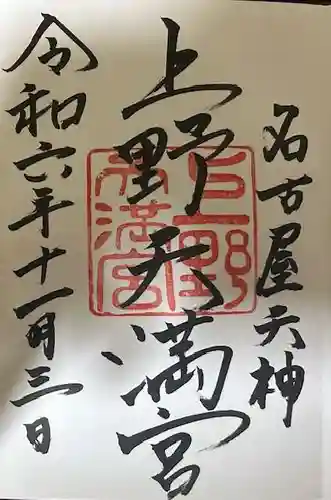 名古屋天神
上野天満宮
上野天満宮
令和六年十一月三日